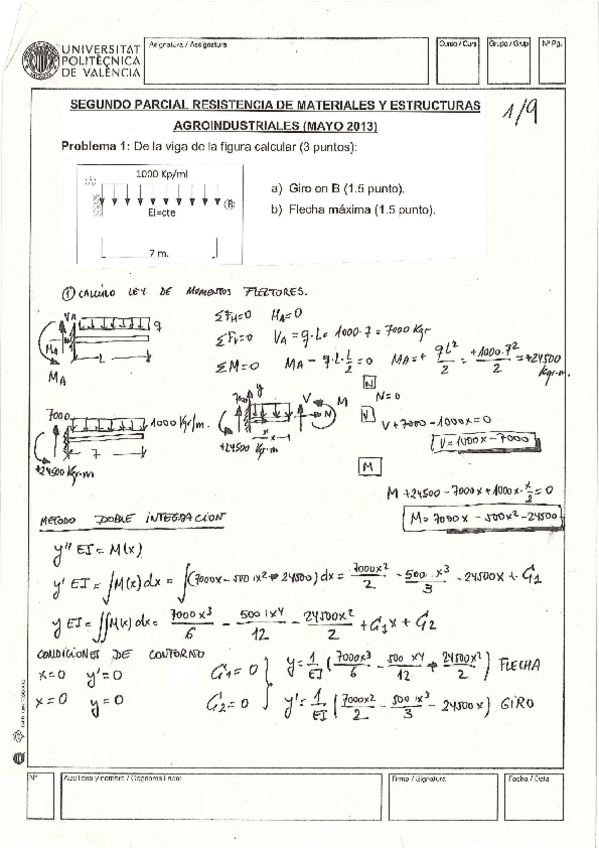 UNIVERSITAT
POLITÈCNICA
DE VALÈNCIA
Asignatura / Assignatura
Curso / Curs
Grupo / Grup
Nº Pg.
1/9
SEGUNDO PARCIAL RESISTENCIA DE MATERIALES Y ESTRUCTURAS
AGROINDUSTRIALES (MAYO 2013)
Problema 1: De la viga de la figura calcular (3 puntos):
1000 Kp/ml
EI=cte
B
7 m.
a) Giro en B (1.5 punto).
b) Flecha máxima (1.5 punto).
① CALCULO LEY DE MOMENTOS FLECTORES.
VA
q
MA
L
MA
ΣFH=0 HA=0
ΣFV=0 VA = q·L = 1000·7 = 7000 Kgr
ΣM=0 MA - q·L·L/2 = 0 MA = + qL²/2 = +1000·7²/2 = +24500 Kgr·m.
7000
1000 Kgr/m.
+24500 Kgr·m
7
y
7000
V
M
N
x
+24500 Kgr·m
N
N=0
V
V+7000-1000x=0
V=1000x-7000
M
M+24500-7000x+1000x·x/2=0
M=7000x-500x²-24500
METODO DOBLE INTEGRACION
y'' EI = M(x)
y' EI = ∫M(x)dx = ∫(7000x-500x²-24500)dx = 7000x²/2 - 500x³/3 - 24500x + C1
y EI = ∬M(x)dx = 7000x³/6 - 500x⁴/12 - 24500x²/2 + C1x + C2
CONDICIONES DE CONTORNO
x=0 y'=0 C1=0 y=1/EI (7000x³/6 - 500x⁴/12 - 24500x²/2) FLECHA
x=0 y=0 C2=0 y'=1/EI (7000x²/2 - 500x³/3 - 24500x) GIRO
Nº
Apellidos y nombre / Cognoms i nom
Firma / Signatura
Fecha / Data